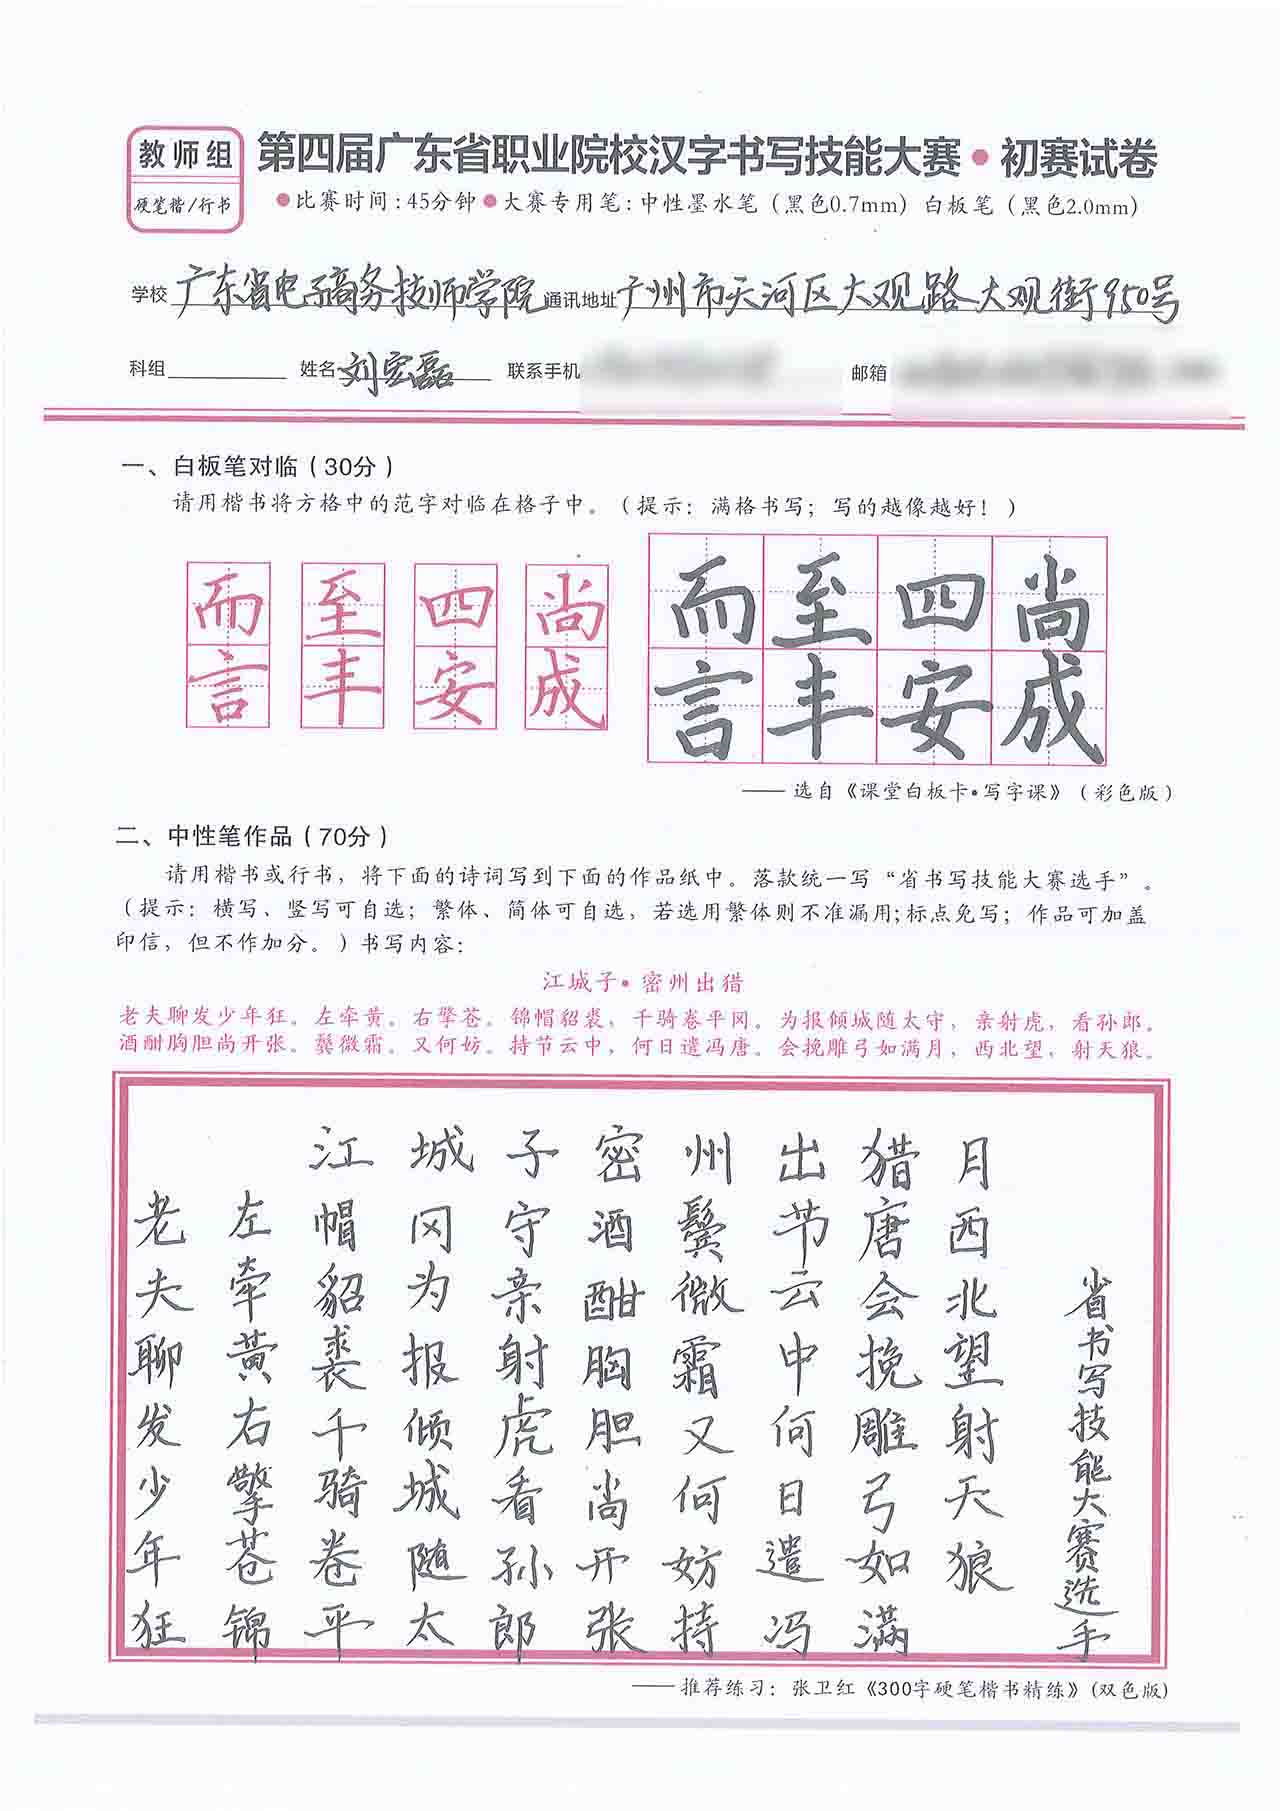 教师组
硬笔楷/行书
第四届广东省职业院校汉字书写技能大赛•初赛试卷
●比赛时间:45分钟●大赛专用笔:中性墨水笔（黑色0.7mm）白板笔（黑色2.0mm）
学校广东省电子商务技师学院通讯地址广州市天河区大观路大观街950号
科组 姓名刘宏磊 联系手机 邮箱
一、白板笔对临（30分）
请用楷书将方格中的范字对临在格子中。（提示：满格书写；写的越像越好！）
而至四尚
言丰安成
而至四尚
言丰安成
——选自《课堂白板卡•写字课》（彩色版）
二、中性笔作品（70分）
请用楷书或行书，将下面的诗词写到下面的作品纸中。落款统一写“省书写技能大赛选手”。
（提示：横写、竖写可自选；繁体、简体可自选，若选用繁体则不准漏用;标点免写；作品可加盖
印信，但不作加分。）书写内容：
江城子•密州出猎
老夫聊发少年狂。左牵黄。右擎苍。锦帽貂裘，千骑卷平冈。为报倾城随太守，亲射虎，看孙郎。
酒酣胸胆尚开张。鬓微霜。又何妨。持节云中，何日遣冯唐。会挽雕弓如满月，西北望，射天狼。
江城子密州出猎
老夫聊发少年狂
左牵黄右擎苍锦
帽貂裘千骑卷平
冈为报倾城随太
守亲射虎看孙郎
酒酣胸胆尚开张
鬓微霜又何妨持
节云中何日遣冯
唐会挽雕弓如满
月西北望射天狼
省书写技能大赛选手
——推荐练习：张卫红《300字硬笔楷书精练》(双色版)